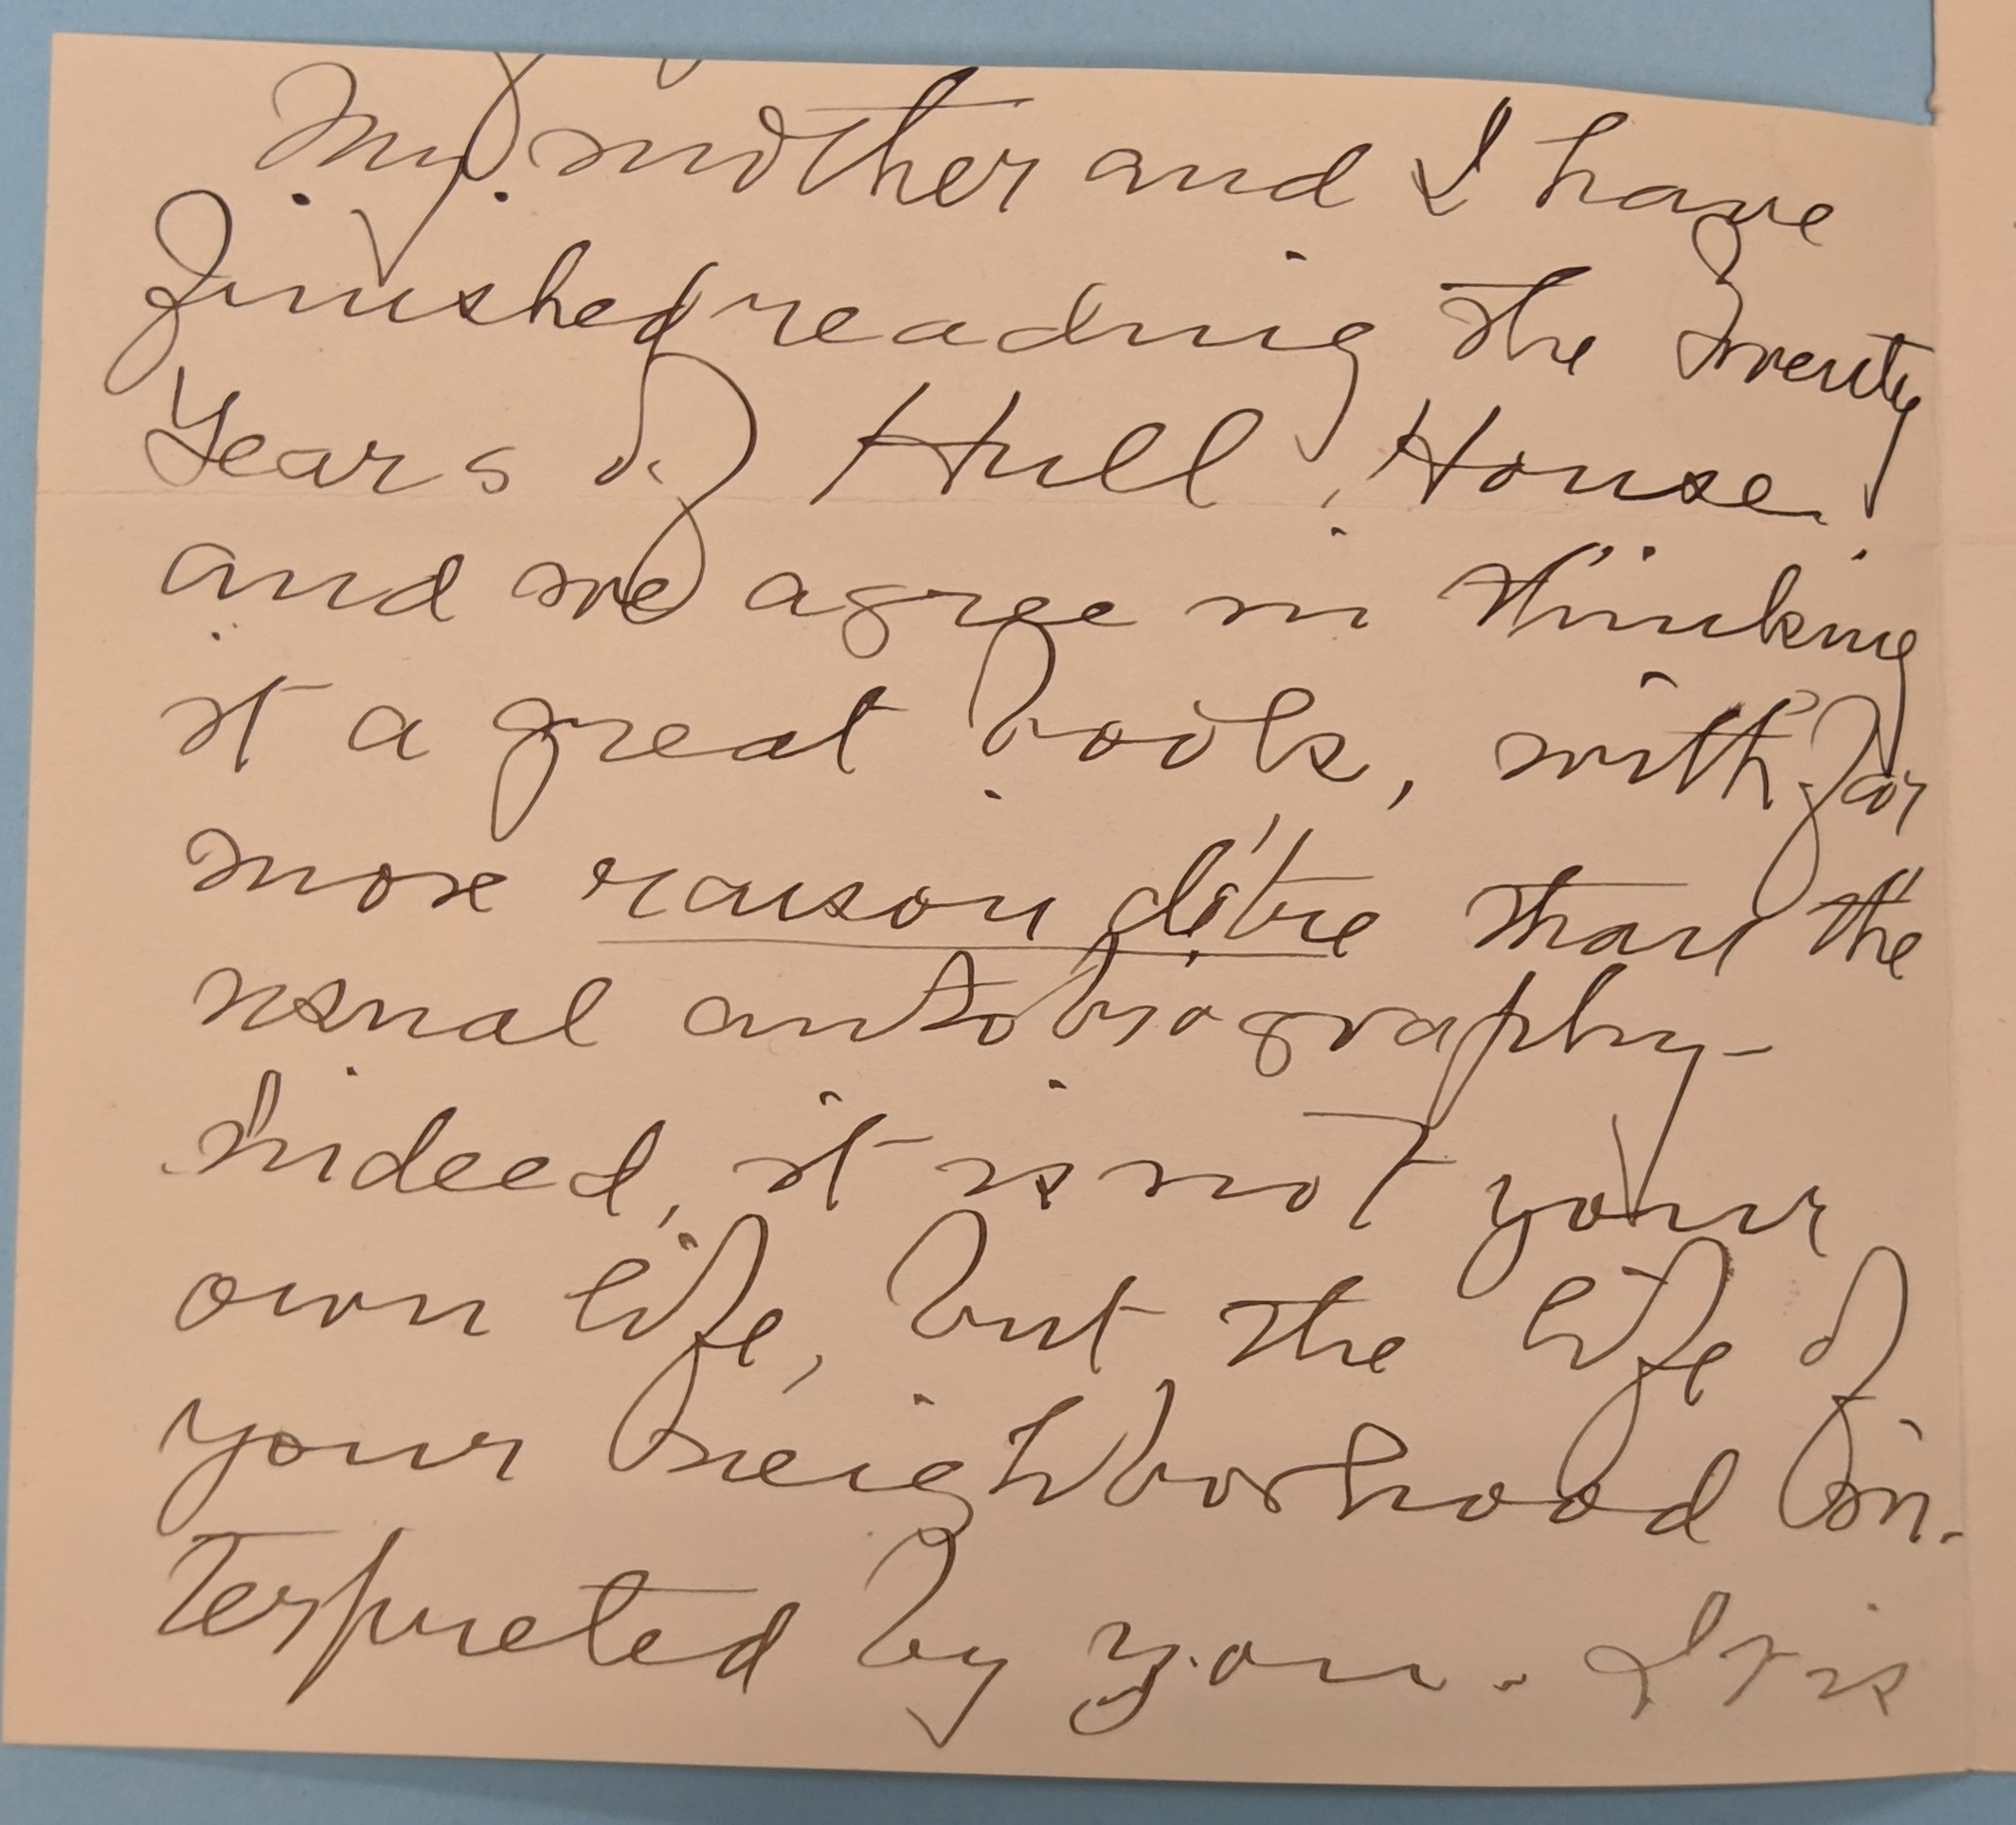 My mother and I have
finished reading the Twenty
Years of Hull House
and we agree in thinking
it a great book, with far
more raison d'être than the
usual autobiography –
Indeed, it is not your
own life, but the life of
your neighborhood in-
terpreted by you. It is